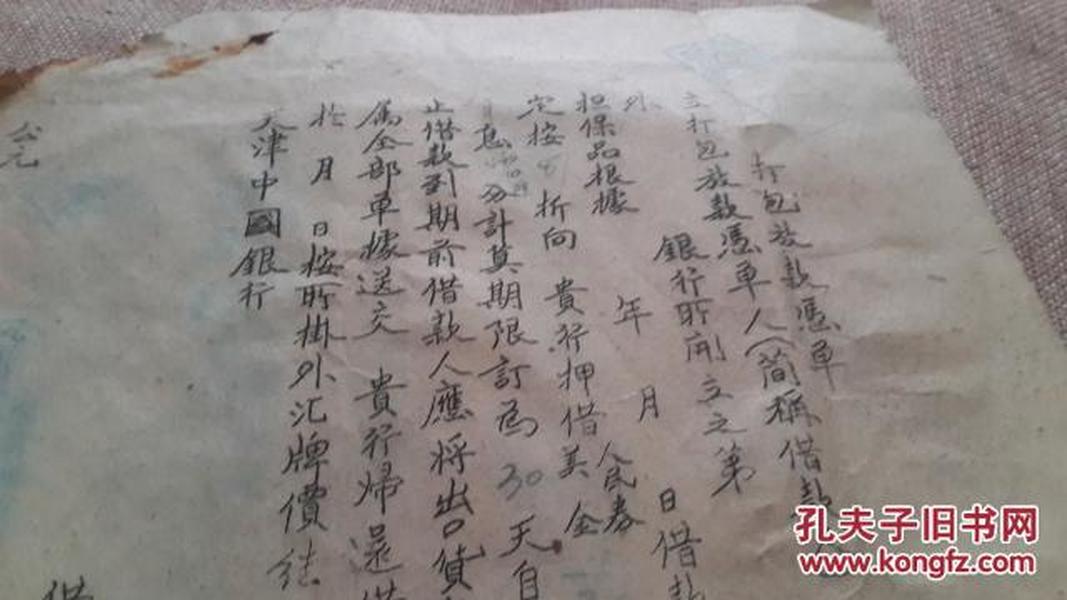 打包放款憑單
立打包放款憑單人(簡稱借款
外 銀行所開立之第
年 月 日借款
担保品根據 人民券
定按 折向 貴行押借美金
息 分計算期限訂為30天自
止借款到期前借款人應將出口貨
屬全部單據送交 貴行歸還借
於 月 日按所掛外汇牌價結
天津中國銀行
公元
借
孔夫子旧书网
www.kongfz.com